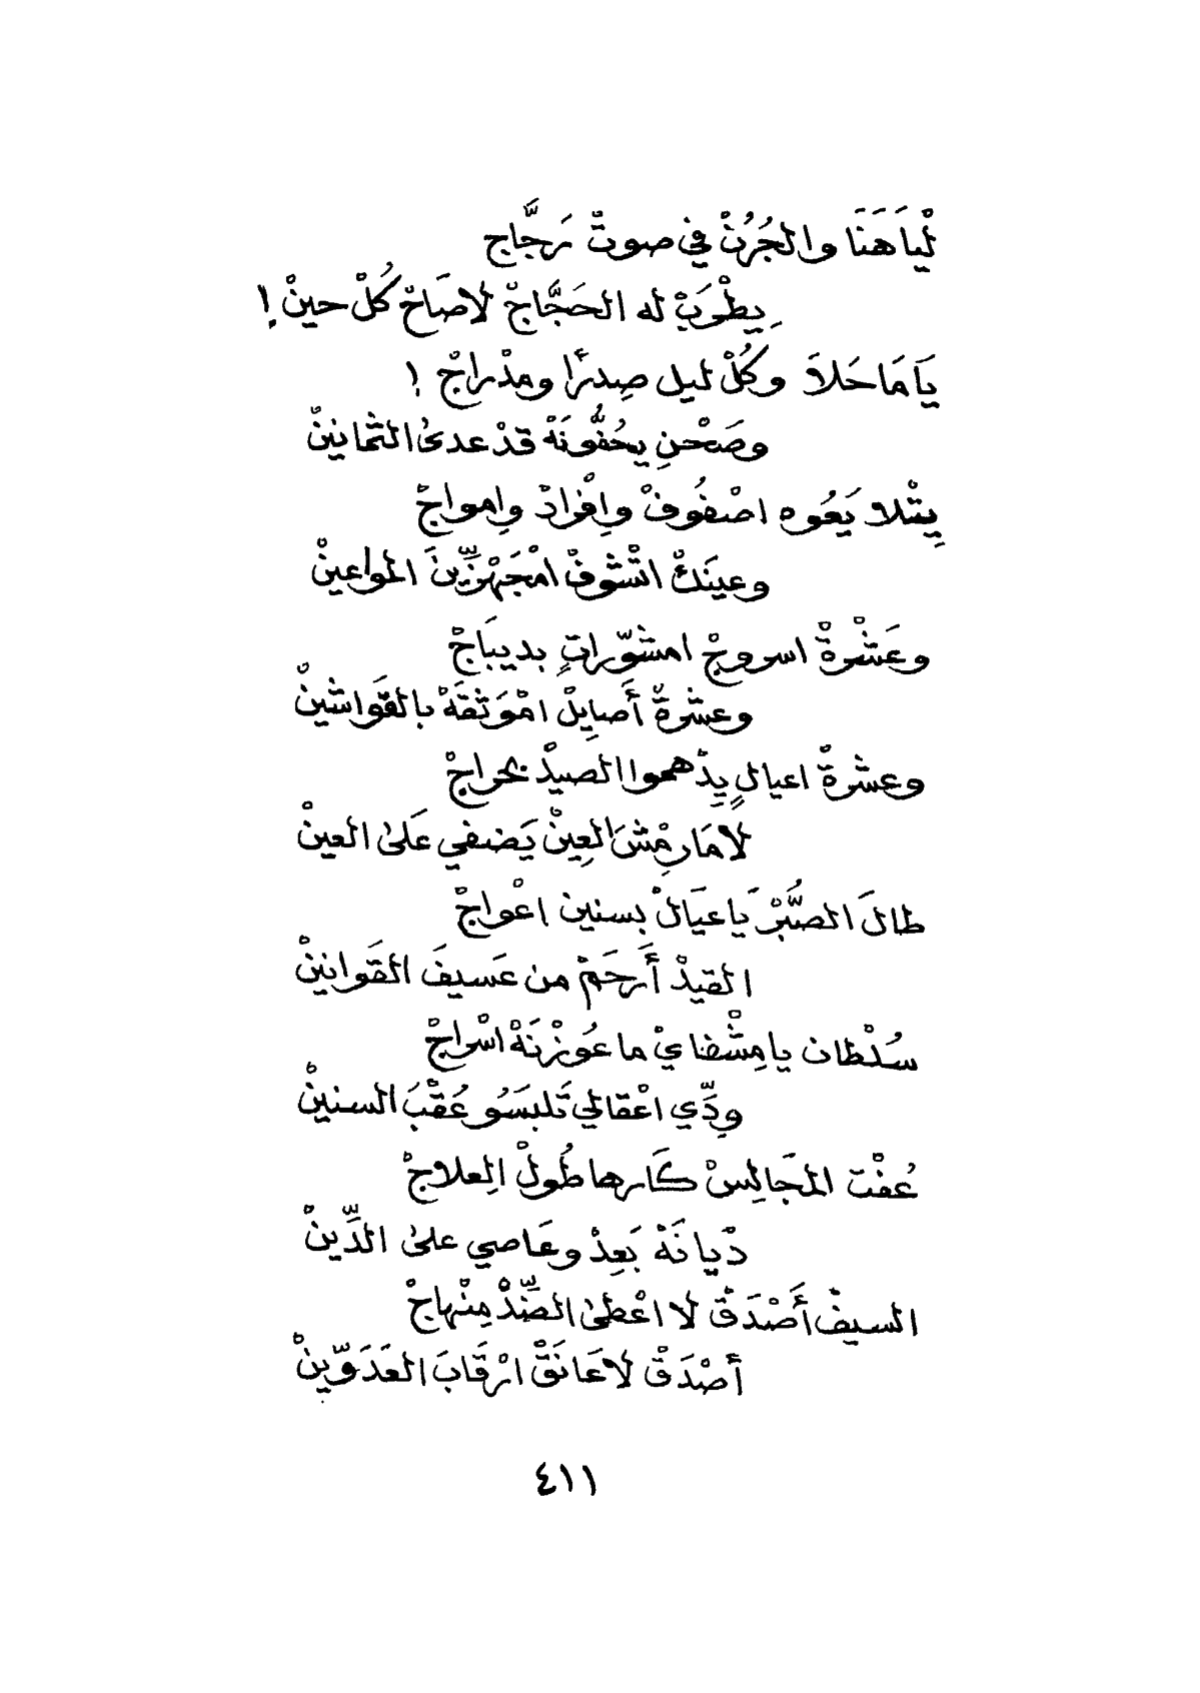 لْيَاهَنَا والجُرُنْ في صوتْ رَجَّاج
يِطْرَبْ له الحَجَّاجْ لاصَاحْ كُلْ حينْ !
يَامَاحَلاَ وكُلْ ليل صِدرًا ومدْراجْ !
وصَحْنٍ يحُفُّونَهْ قدْ عدىٰ الثمانينْ
يِتْلا يَعُوه اصْفُوفْ وِافْرادْ وِامواجْ
وعينَكْ اتْشوفْ امْجَهْزِّينَ المواعينْ
وعَشْرةْ اسروجْ امشوّراتٍ بديبَاجْ
وعشرةْ أَصايِلْ امْوَثقَهْ بالقَواشينْ
وعشرةْ اعيالٍ يِدْهموا الصيدْ بحراجْ
لامَارِمْشَ العِينْ يَضفي عَلىٰ العينْ
طالَ الصُّبْرْ يَاعيَالْ بسنين اعْواجْ
القيدْ أَرحَمْ من عَسيفَ القَوانينْ
سُلْطان يامِشْفايْ ما عُوزْنَهْ اسْراجْ
ودِّي اعْقالي تَلبسَو عُقْبَ السنينْ
عُفْت المجَالِسْ كَارها طُولْ العِلاجْ
دْيانَهْ بَعِدْ وعَاصي علىٰ الدِّينْ
السيفْ أَصْدَقْ لا اعْطىٰ الضِّدْ مِنْهاجْ
أصْدَقْ لاعَانَقْ ارْقَابَ العَدَوّينْ
٤١١